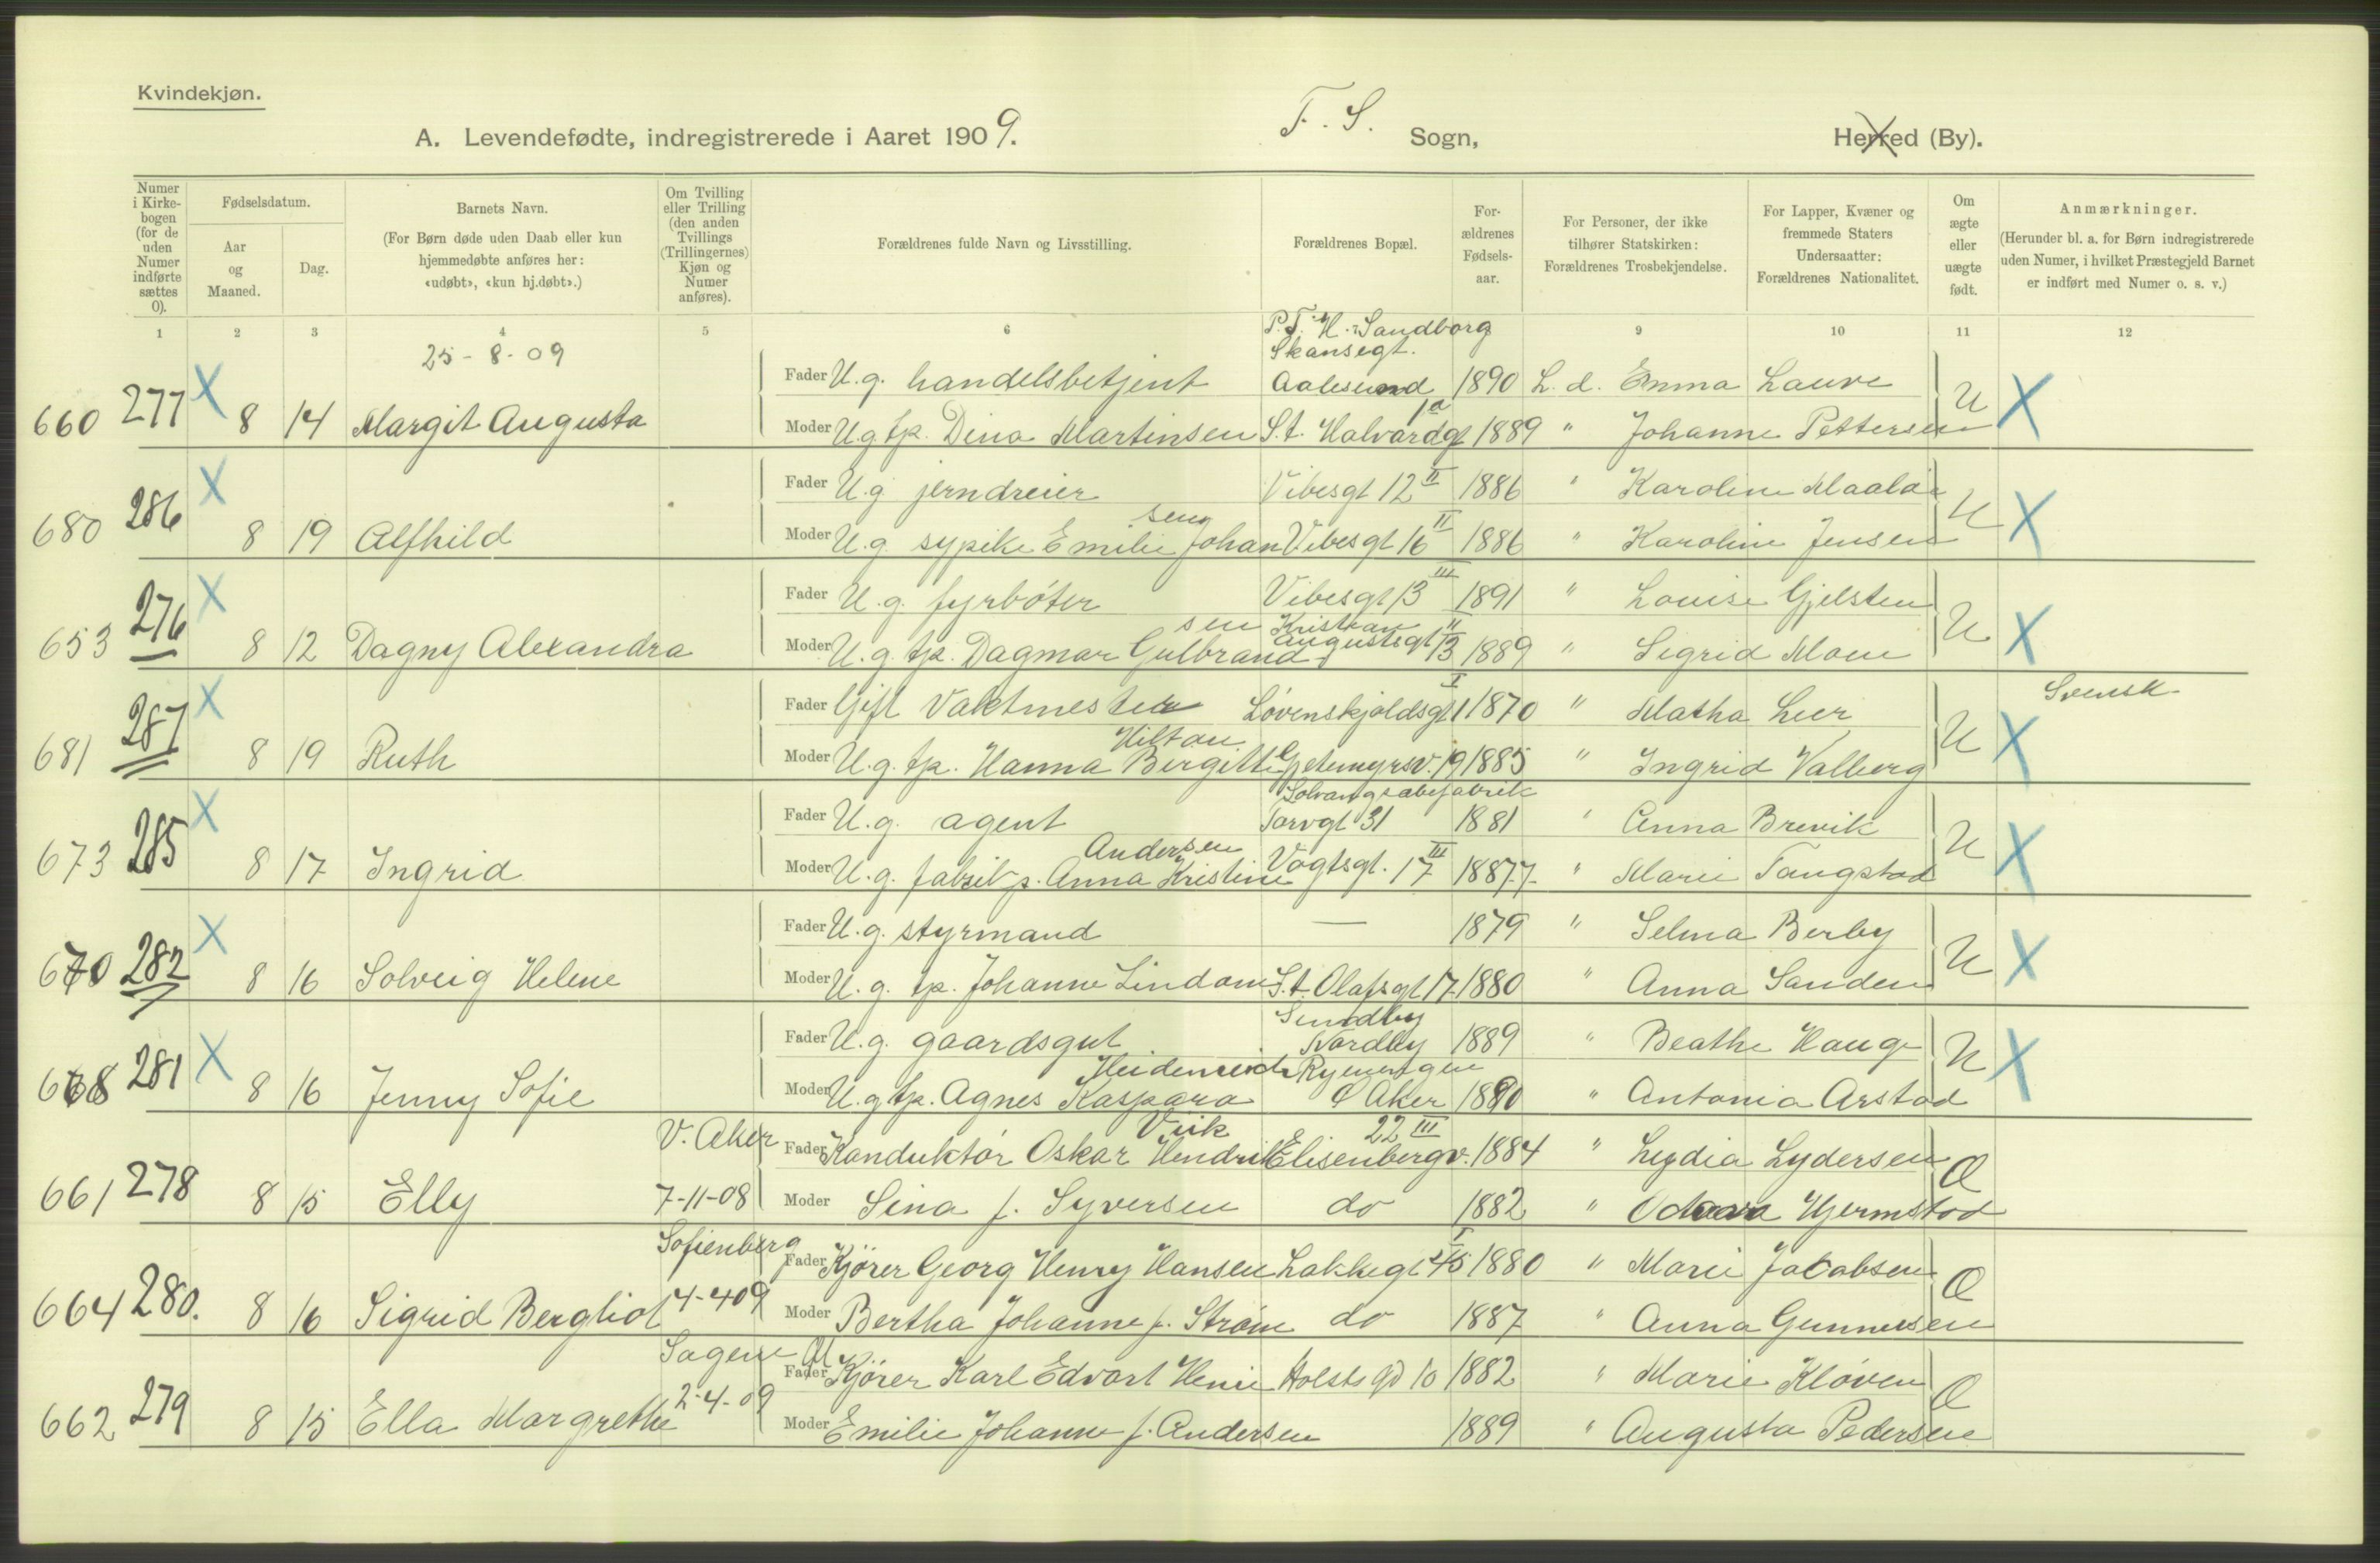 Kvindekjøn.
A. Levendefødte, indregistrerede i Aaret 1909. F. S. Sogn, Herred (By).
Numer i Kirkebogen (for de uden Numer indførte sættes 0).
Fødselsdatum.
Aar og Maaned.
Dag.
Barnets Navn.
(For Børn døde uden Daab eller kun hjemmedøbte anføres her: «udøbt», «kun hj.døbt».)
Om Tvilling eller Trilling (den anden Tvillings (Trillingernes) Kjøn og Numer anføres).
Forældrenes fulde Navn og Livsstilling.
Forældrenes Bopæl.
Forældrenes Fødselsaar.
For Personer, der ikke tilhører Statskirken: Forældrenes Trosbekjendelse.
For Lapper, Kvæner og fremmede Staters Undersaatter: Forældrenes Nationalitet.
Om ægte eller uægte født.
Anmærkninger.
(Herunder bl. a. for Børn indregistrerede uden Numer, i hvilket Præstegjeld Barnet er indført med Numer o. s. v.)
1 2 3 4 5 6 9 10 11 12
25-8-09
P.T. H. Sandborg
Skansegt.
Fader U.g. handelsbetjent Aalesund 1890 L. d. Emma Laure U X
660 277 X 8 14 Margit Augusta Moder U.g. tp. Dina Martinsen St. Halvardgt 1a 1889 " Johanne Pettersen
X Fader U.g. jerndreier Vibesgt 12 II 1886 " Karoline U X
680 286 8 19 Alfhild Moder U.g. sypike Emilie Johansen Vibesgt 16 II 1886 " Karoline Jensen
X Fader U.g. fyrbøter Vibesgt 13 III 1891 " Louise Gjelsten U X
653 276 8 12 Dagny Alexandra Moder U.g. tp. Dagmar Gulbrandsen Kristian Augustsgt 13 II 1889 " Sigrid Moen
X Fader Gift Vaktmester Løvenskjoldsgt 1 I 1870 " Matha Leer U X Svensk
681 287 8 19 Ruth Moder U.g. tp. Hanna Birgitte Hiltan Gjetemyrsv. 19 1885 " Ingrid Valberg
X Fader U.g. agent Solvang sæbefabrik Torvgt 31 1881 " Anna Brevik U X
673 285 8 17 Ingrid Moder U.g. fabrikp. Anna Kristine Andersen Vogtsgt. 17 III 1887 " Marie Tangstad
X Fader U.g. styrmand — 1879 " Selma Berby U X
670 282 8 16 Solveig Helene Moder U.g. tp. Johanne Lindam St. Olafsgt 17 1880 " Anna Sanden
X Fader U.g. gaardsgut Sundby Nordby 1889 " Beathe Hauge U X
668 281 8 16 Jenny Sofie Moder U.g. tp. Agnes Kaspara Heidenreich Ryenbergen Ø Aker 1890 " Antonia Arstad
V. Aker Fader Konduktør Oskar Hendrik Viik Elisenbergv. 22 III 1884 " Lydia Lydersen Æ
661 278 8 15 Elly 7-11-08 Moder Sina f. Syversen do 1882 " Hjermstad
Sofienberg Fader Kjører Georg Henry Hansen Lakkegt 45 I 1880 " Marie Jacobsen Æ
664 280. 8 16 Sigrid Bergliot 4-4 09 Moder Bertha Johanne f. Strøm do 1887 " Anna Gunnersen
Sagene Fader Kjører Karl Edvart Henie Holsts gd 10 1882 " Marie Kløven Æ
662 279 8 15 Ella Margrethe 2-4-09 Moder Emilie Johanne f. Andersen 1889 " Augusta Pedersen